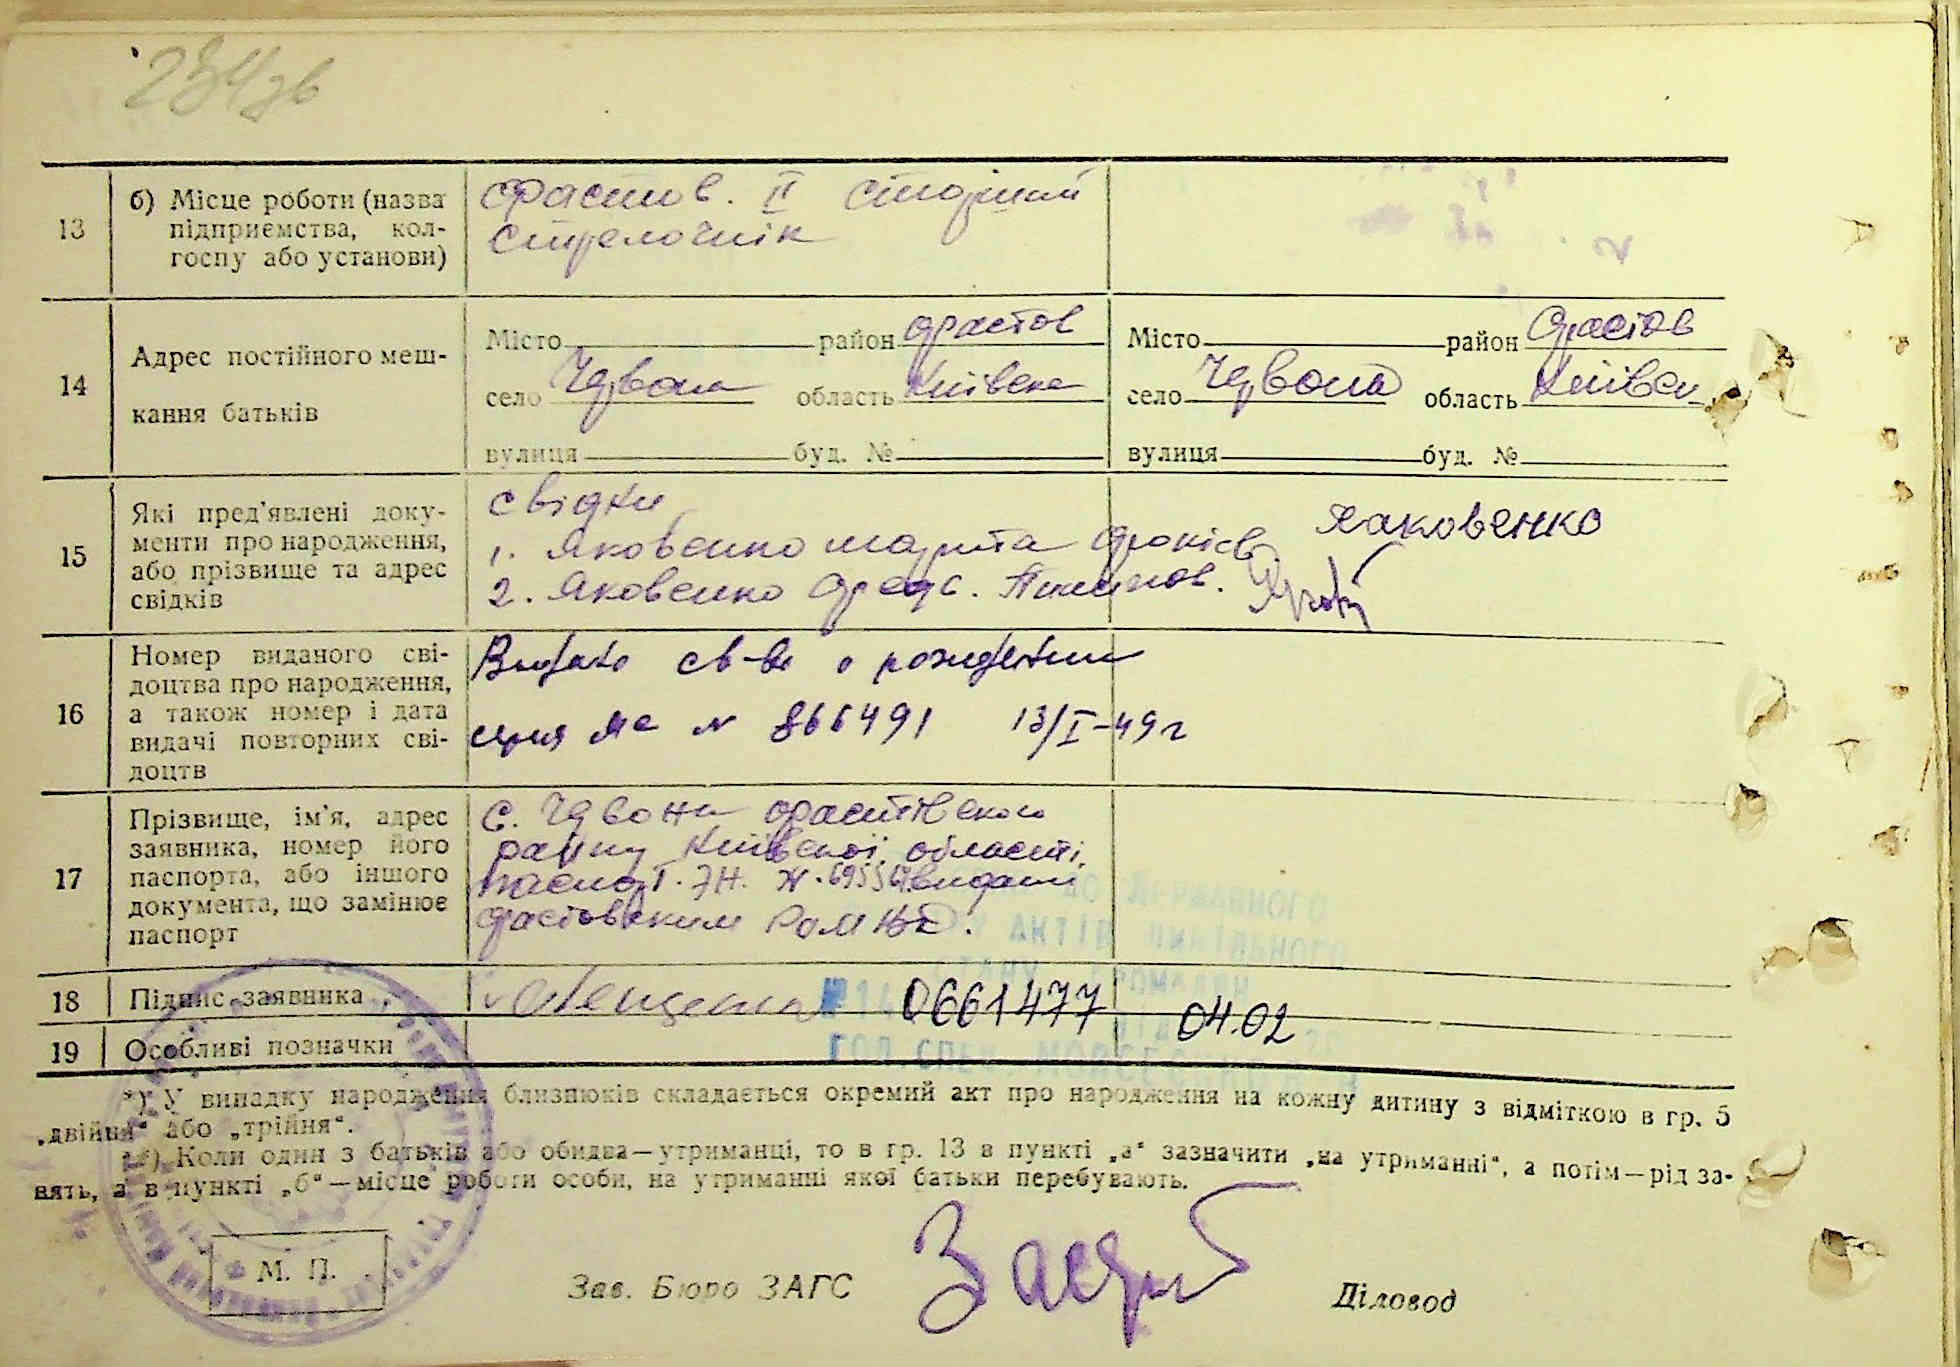 234зв
13
б) Місце роботи (назва
підприємства, кол-
госпу або установи)
Фастов. II старший
стрелочнік
14
Адрес постійного меш-
кання батьків
Місто район Фастов
село Червона область Київска
вулиця буд. №
Місто район Фастов
село Червона область Київск
вулиця буд. №
15
Які пред'явлені доку-
менти про народження,
або прізвище та адрес
свідків
свідки
1. Яковенко Марита Фокієв Яаковенко
2. Яковенко Федс.
16
Номер виданого сві-
доцтва про народження,
а також номер і дата
видачі повторних сві-
доцтв
Выдано св-во о рождении
серия ЯС № 866491 13/I-49г
17
Прізвище, ім'я, адрес
заявника, номер його
паспорта, або іншого
документа, що замінює
паспорт
С. Червона Фастівского
району Київскої області,
паспорт. видани
Фастовским
18
Підпис заявника
19
Особливі позначки
ДО ДЕРЖАВНОГО
АКТІВ ЦИВІЛЬНОГО
СТАНУ ГРОМАДЯН
0661477 04.02
ГОЛ.СПЕЦ.
*) У випадку народження близнюків складається окремий акт про народження на кожну дитину з відміткою в гр. 5
„двійня“ або „трійня“.
**) Коли один з батьків або обидва—утриманці, то в гр. 13 в пункті „а“ зазначити „на утриманні“, а потім—рід за-
нять, а в пункті „б“—місце роботи особи, на утриманні якої батьки перебувають.
М. П.
Зав. Бюро ЗАГС
Діловод